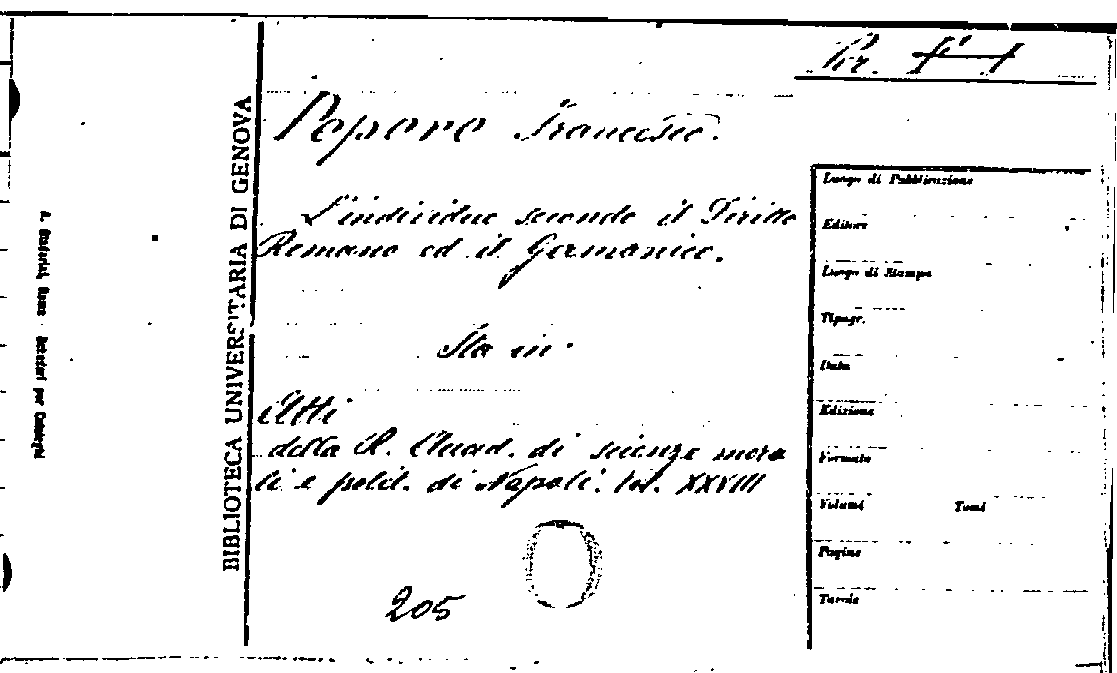 Per.
Pepere Francesco.
L'individuo secondo il Diritto
Romano ed il Germanico.
Sta in
Atti
della R. Accad. di scienze mora
li e polit. di Napoli. vol. XXVIII
205
BIBLIOTECA UNIVERSITARIA DI GENOVA
Luogo di Pubblicazione
Editore
Luogo di Stampa
Tipogr.
Data
Edizione
Formato
Volumi Tomi
Pagine
Tavole